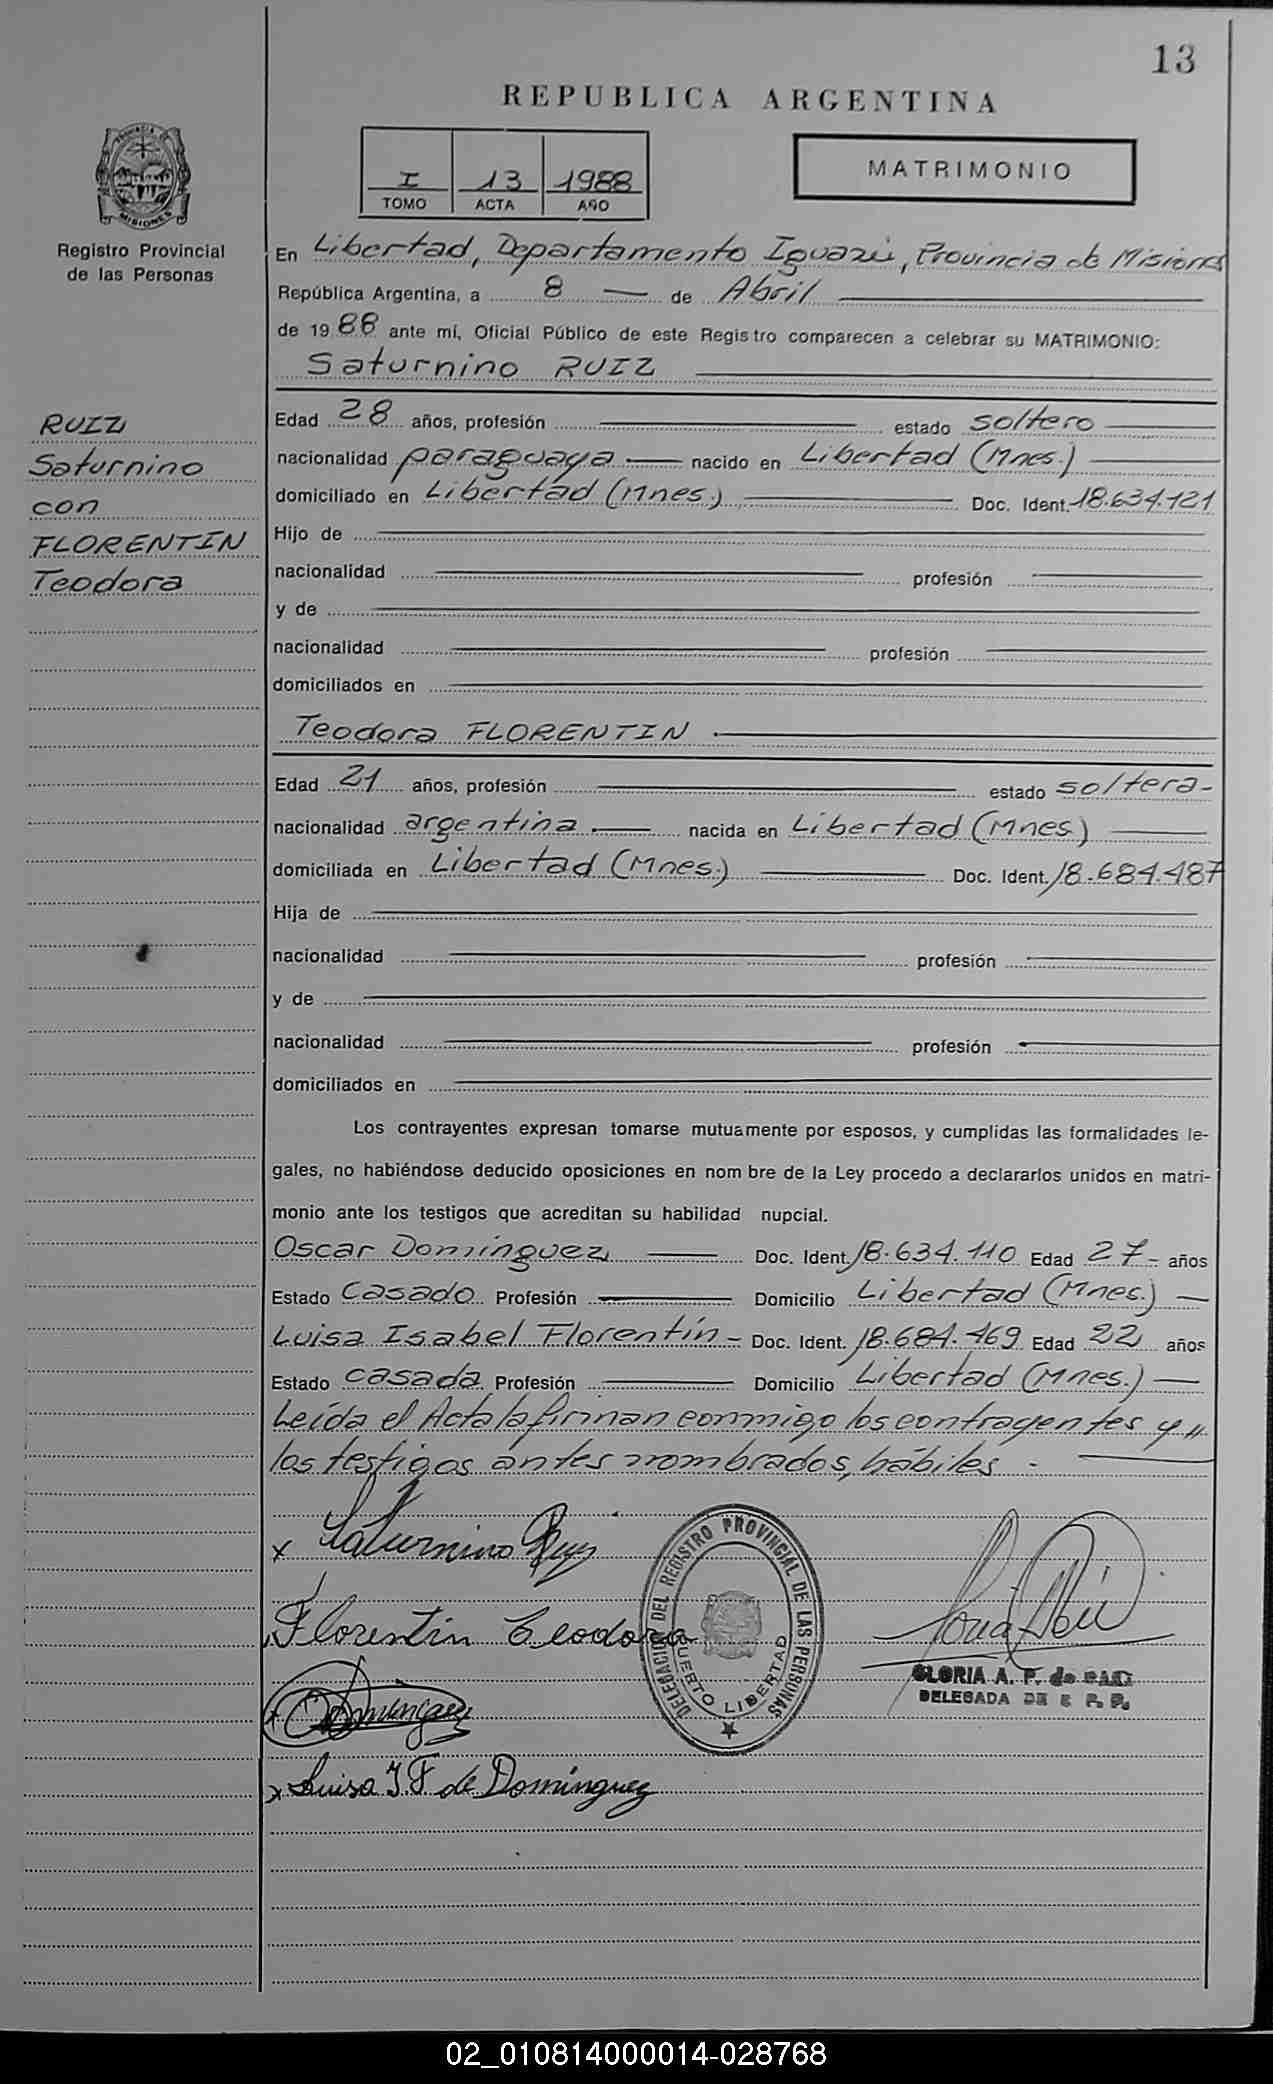 13
REPUBLICA ARGENTINA
PROVINCIA DE
MISIONES
Registro Provincial
de las Personas
I 13 1988
TOMO ACTA AÑO
MATRIMONIO
En Libertad, Departamento Iguazú, Provincia de Misiones
República Argentina, a 8 — de Abril
de 1988 ante mí, Oficial Público de este Registro comparecen a celebrar su MATRIMONIO:
Saturnino RUIZ
RUIZ
Saturnino
con
FLORENTIN
Teodora
Edad 28 años, profesión — estado soltero
nacionalidad paraguaya — nacido en Libertad (Mnes.)
domiciliado en Libertad (Mnes.) Doc. Ident. 18.634.121
Hijo de
nacionalidad profesión
y de
nacionalidad profesión
domiciliados en
Teodora FLORENTIN
Edad 21 años, profesión — estado soltera-
nacionalidad argentina — nacida en Libertad (Mnes)
domiciliada en Libertad (Mnes.) Doc. Ident. 18.684.487
Hija de
nacionalidad profesión
y de
nacionalidad profesión
domiciliados en
Los contrayentes expresan tomarse mutuamente por esposos, y cumplidas las formalidades le-
gales, no habiéndose deducido oposiciones en nom bre de la Ley procedo a declararlos unidos en matri-
monio ante los testigos que acreditan su habilidad nupcial.
Oscar Domínguez Doc. Ident. 18.634.110 Edad 27- años
Estado Casado Profesión — Domicilio Libertad (Mnes.) —
Luisa Isabel Florentín- Doc. Ident. 18.684.469 Edad 22 años
Estado casada Profesión — Domicilio Libertad (Mnes.) —
Leída el Acta la firman conmigo los contrayentes y "
los testigos antes nombrados, hábiles.-
x Saturnino Ruiz
Florentin Teodora
Dominguez
x Luisa I. F de Domínguez
DELEGACION DEL REGISTRO PROVINCIAL DE LAS PERSONAS
PUERTO LIBERTAD
GLORIA A. P. de
DELEGADA DE
02_010814000014-028768